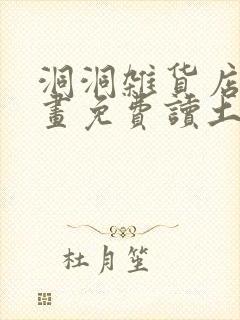 洞洞雑貨店
畫免費讀土
杜月笙